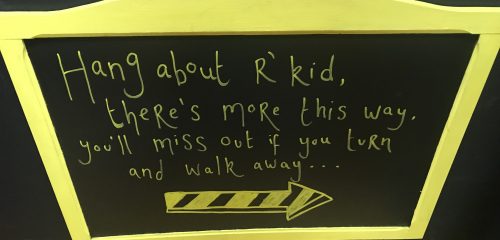 Hang about R'kid,
there's more this way.
you'll miss out if you turn
and walk away...